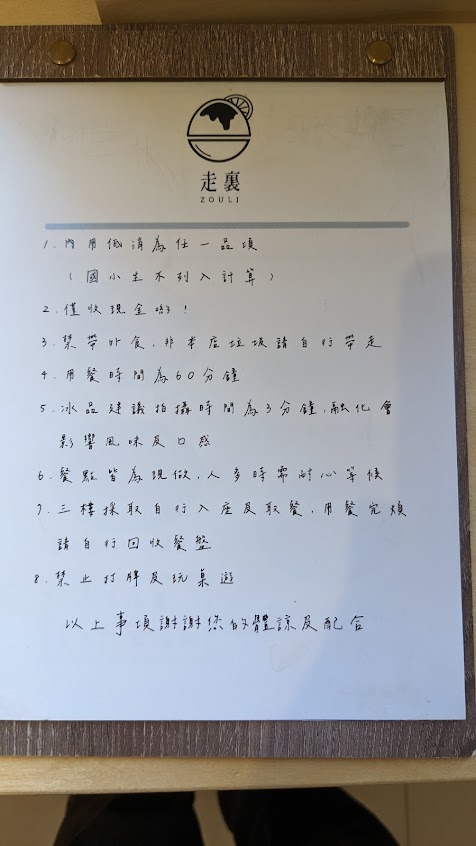 走裏
ZOULI
1. 內用低消為任一品項
(國小生不列入計算)
2. 僅收現金喲!
3. 禁帶外食,非本店垃圾請自行帶走
4. 用餐時間為60分鐘
5. 冰品建議拍攝時間為3分鐘,融化會
影響風味及口感
6. 餐點皆為現做,人多時需耐心等候
7. 三樓採取自行入座及取餐,用餐完煩
請自行回收餐盤
8. 禁止打牌及玩桌遊
以上事項謝謝您的體諒及配合